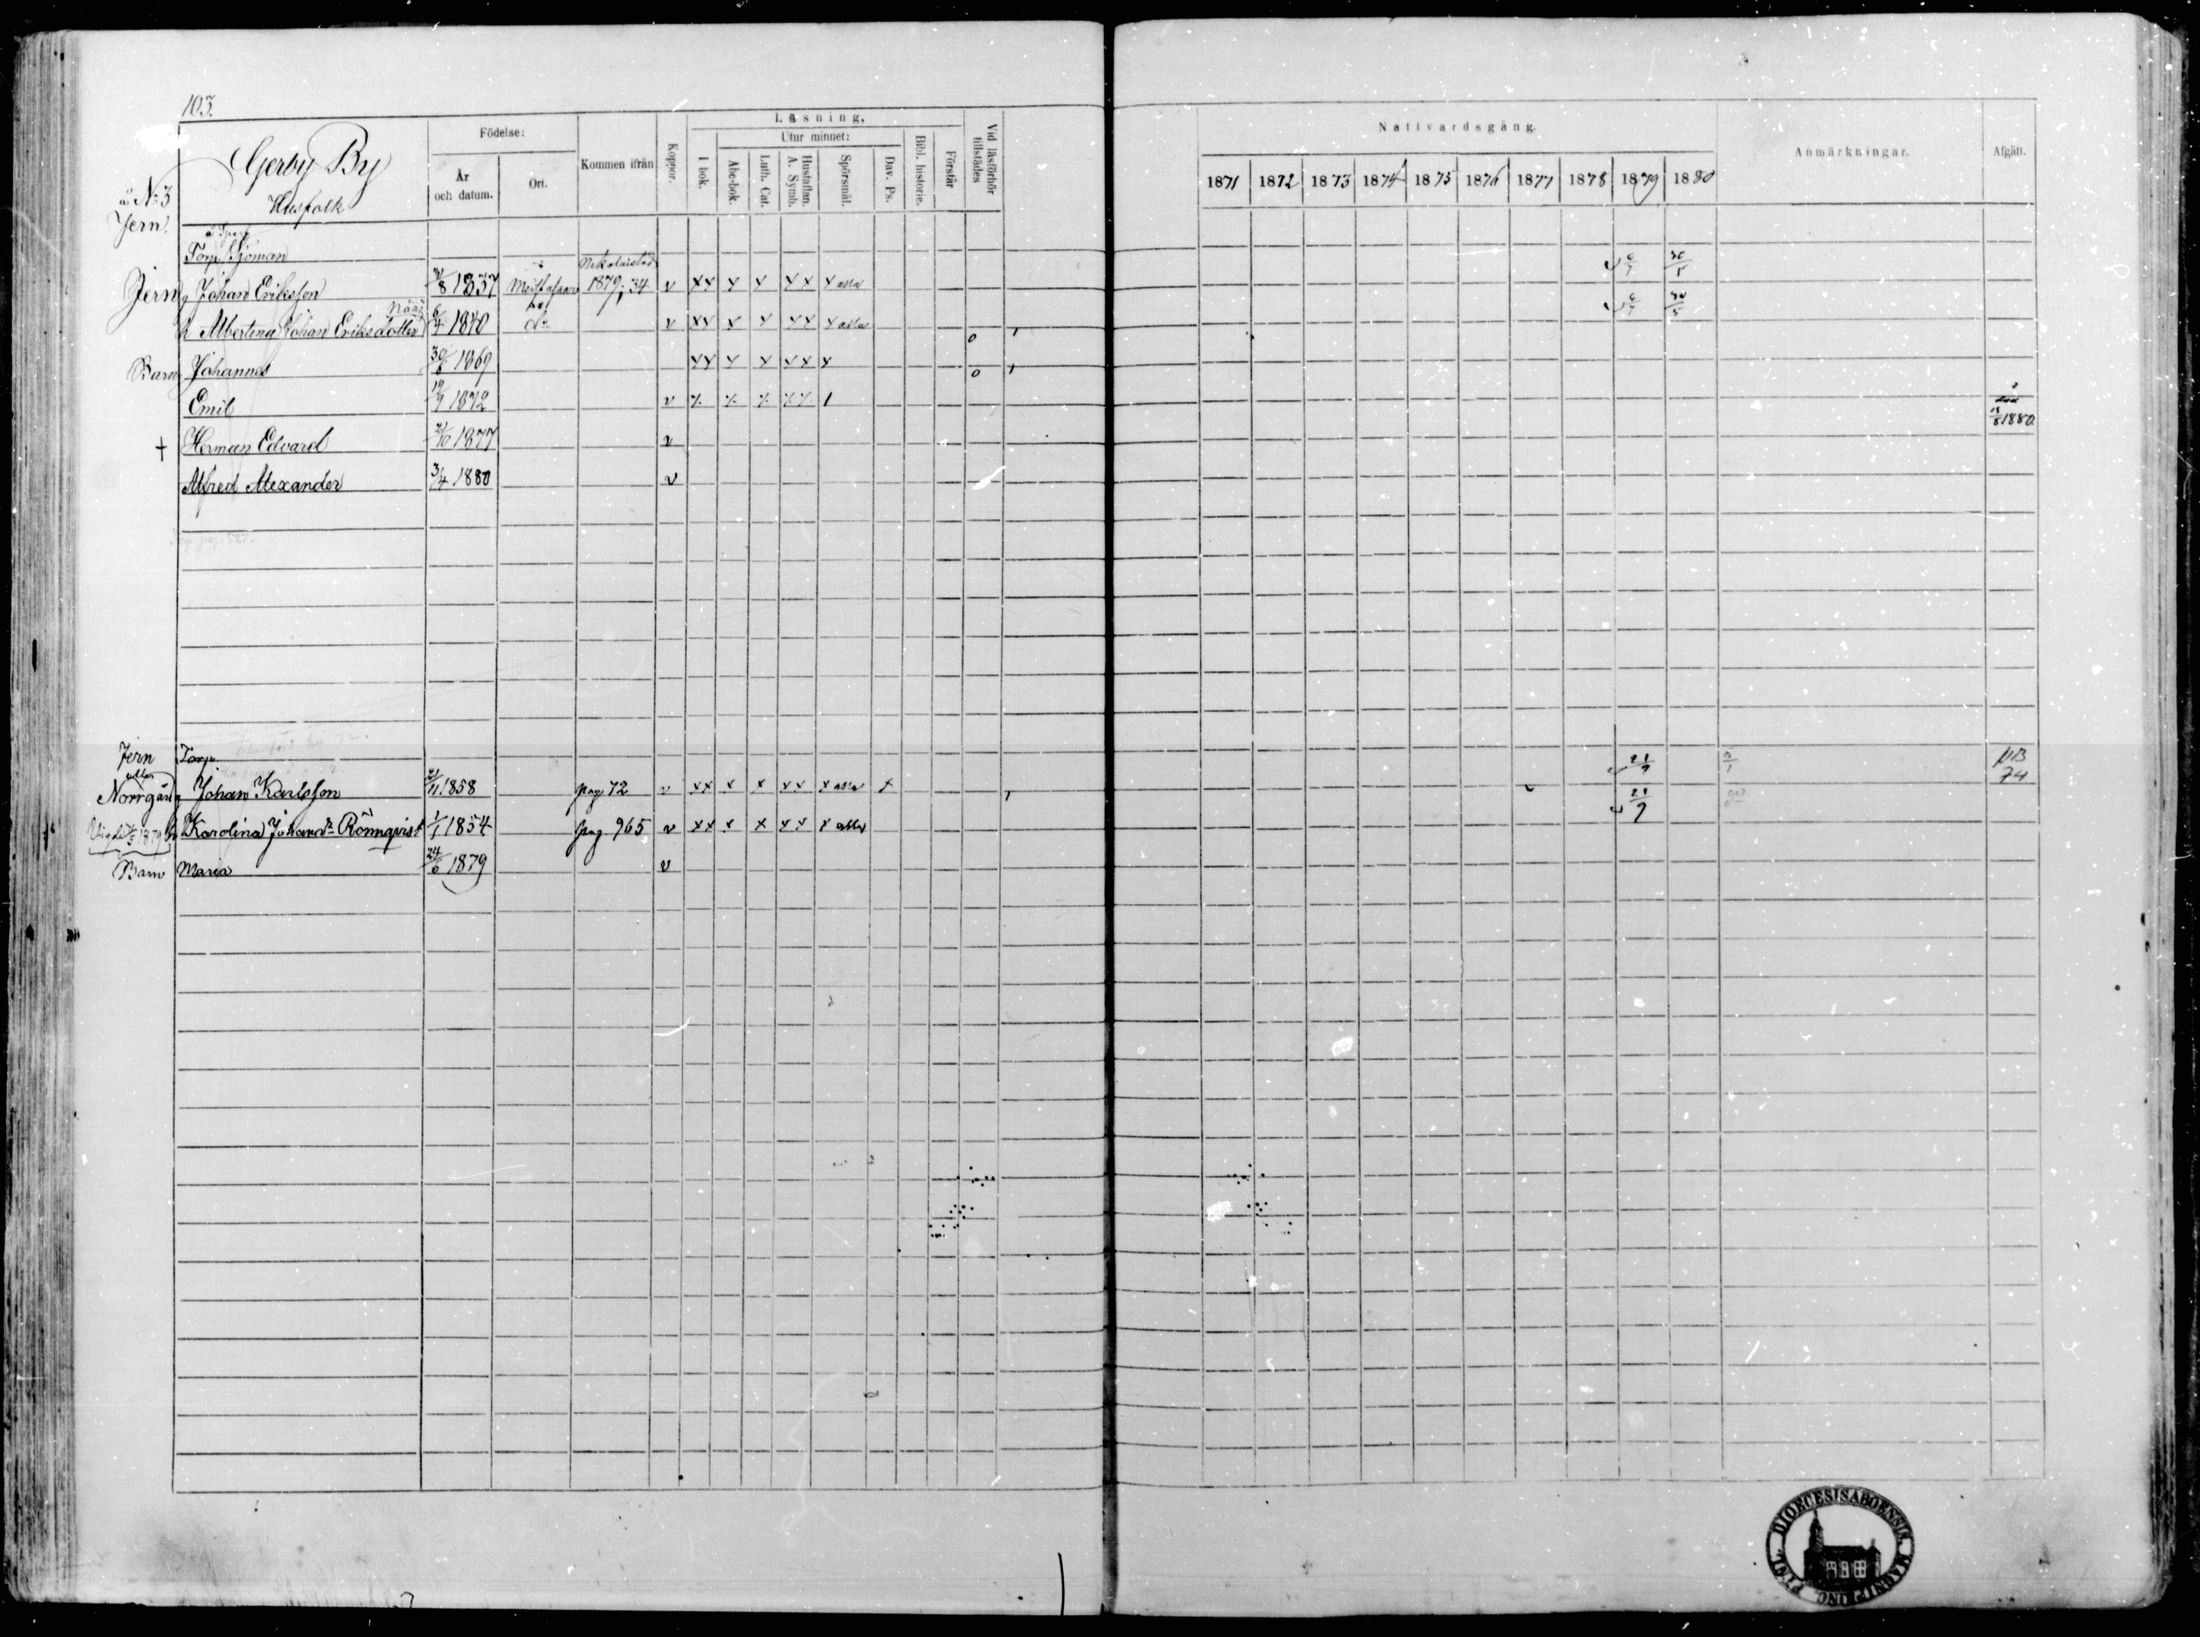 103.
Gerby By
Husfolk
å No 3
Jern
Födelse:
År
och datum.
Ort.
Kommen ifrån
Koppor.
Läsning.
I bok.
Utur minnet:
Abc-bok.
Luth. Cat.
Hustaflan.
A. Symb.
Spörsmål.
Dav. Ps.
Bibl. historie.
Förstår
Vid läsförhör
tillstädes
Nattvardsgång.
1871 1872 1873 1874 1875 1876 1877 1878 1879 1880
Anmärkningar.
Afgått.
Torp. Sjöman
Jern g Johan Eriksson 21/8 1837 1879, 34 v xx x x xx x alla 6/7 30/5
h Albertina Johan Eriksdotter 6/4 1840 do v xx x x xx x alla 6/7 30/5
Barn Johannes 30/8 1869 xx x x xx x
Emil 19/7 1872 v
+ Herman Edvard 21/10 1877 v död 18/8 1880
Alfred Alexander 3/4 1880 v
Jern Torp.
eller
Norrgård g Johan Karlsson 21/11 1858 pag 72 v xx x x xx x alla x 21/9 NB 74
1879 h Karolina Johansdr Rönnqvist 1/1 1854 pag. 965 v xx x x xx x alla 21/9
Barn Maria 24/6 1879 v
DIOECESIS ABOENSIS